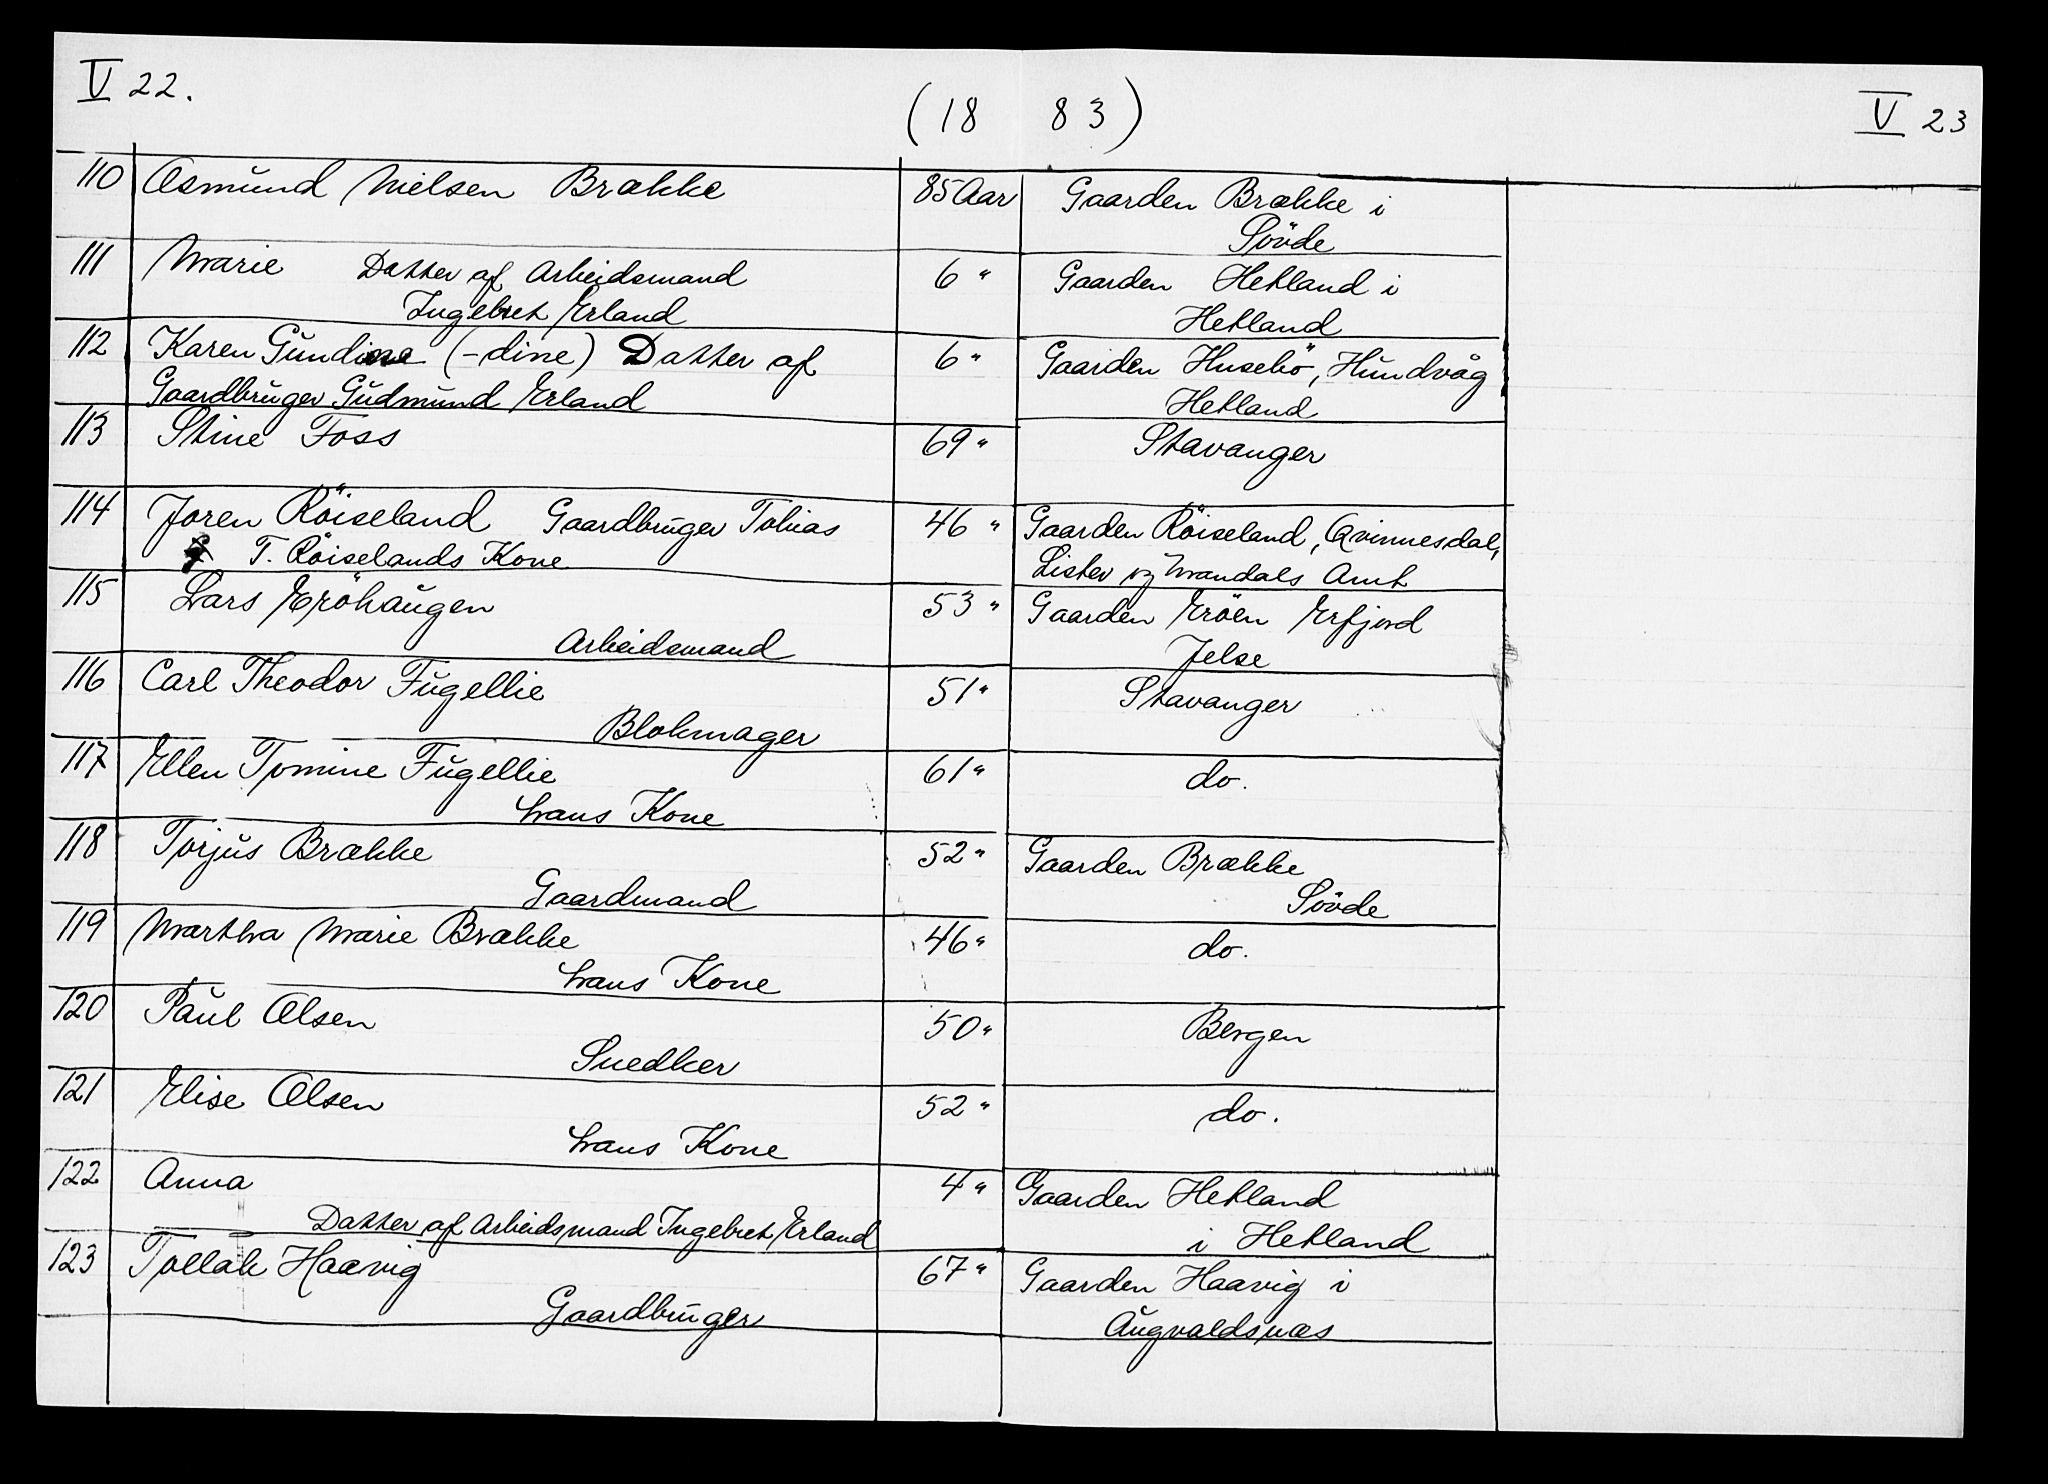 V 22.
(18 83)
V 23
110 Asmund Nielsen Brække 85 Aar Gaarden Brække i
Sövde
111 Marie Datter af Arbeidsmand 6 " Gaarden Hetland i
Ingebret Erland Hetland
112 Karen Gundine (-dine) Datter af 6 " Gaarden Husebö, Hundvåg
Gaardbruger Gudmund Erland Hetland
113 Stine Foss 69 " Stavanger
114 Joren Röiseland Gaardbruger Tobias 46 " Gaarden Röiseland, Qvinnesdal,
T. Röiselands Kone Lister og Mandals Amt
115 Lars Eröhaugen 53 " Gaarden Eröen Erfjord
Arbeidsmand Jelse
116 Carl Theodor Fugellie 51 " Stavanger
Blokmager
117 Ellen Tomine Fugellie 61 " do.
hans Kone
118 Torjus Brække 52 " Gaarden Brække
Gaardmand Sövde
119 Martha Marie Brække 46 " do.
hans Kone
120 Paul Olsen 50 " Bergen
Snedker
121 Elise Olsen 52 " do.
hans Kone
122 Anna 4 " Gaarden Hetland
Datter af Arbeidsmand Ingebret Erland i Hetland
123 Tollak Haavig 67 " Gaarden Haavig i
Gaardbruger Augvaldsnæs